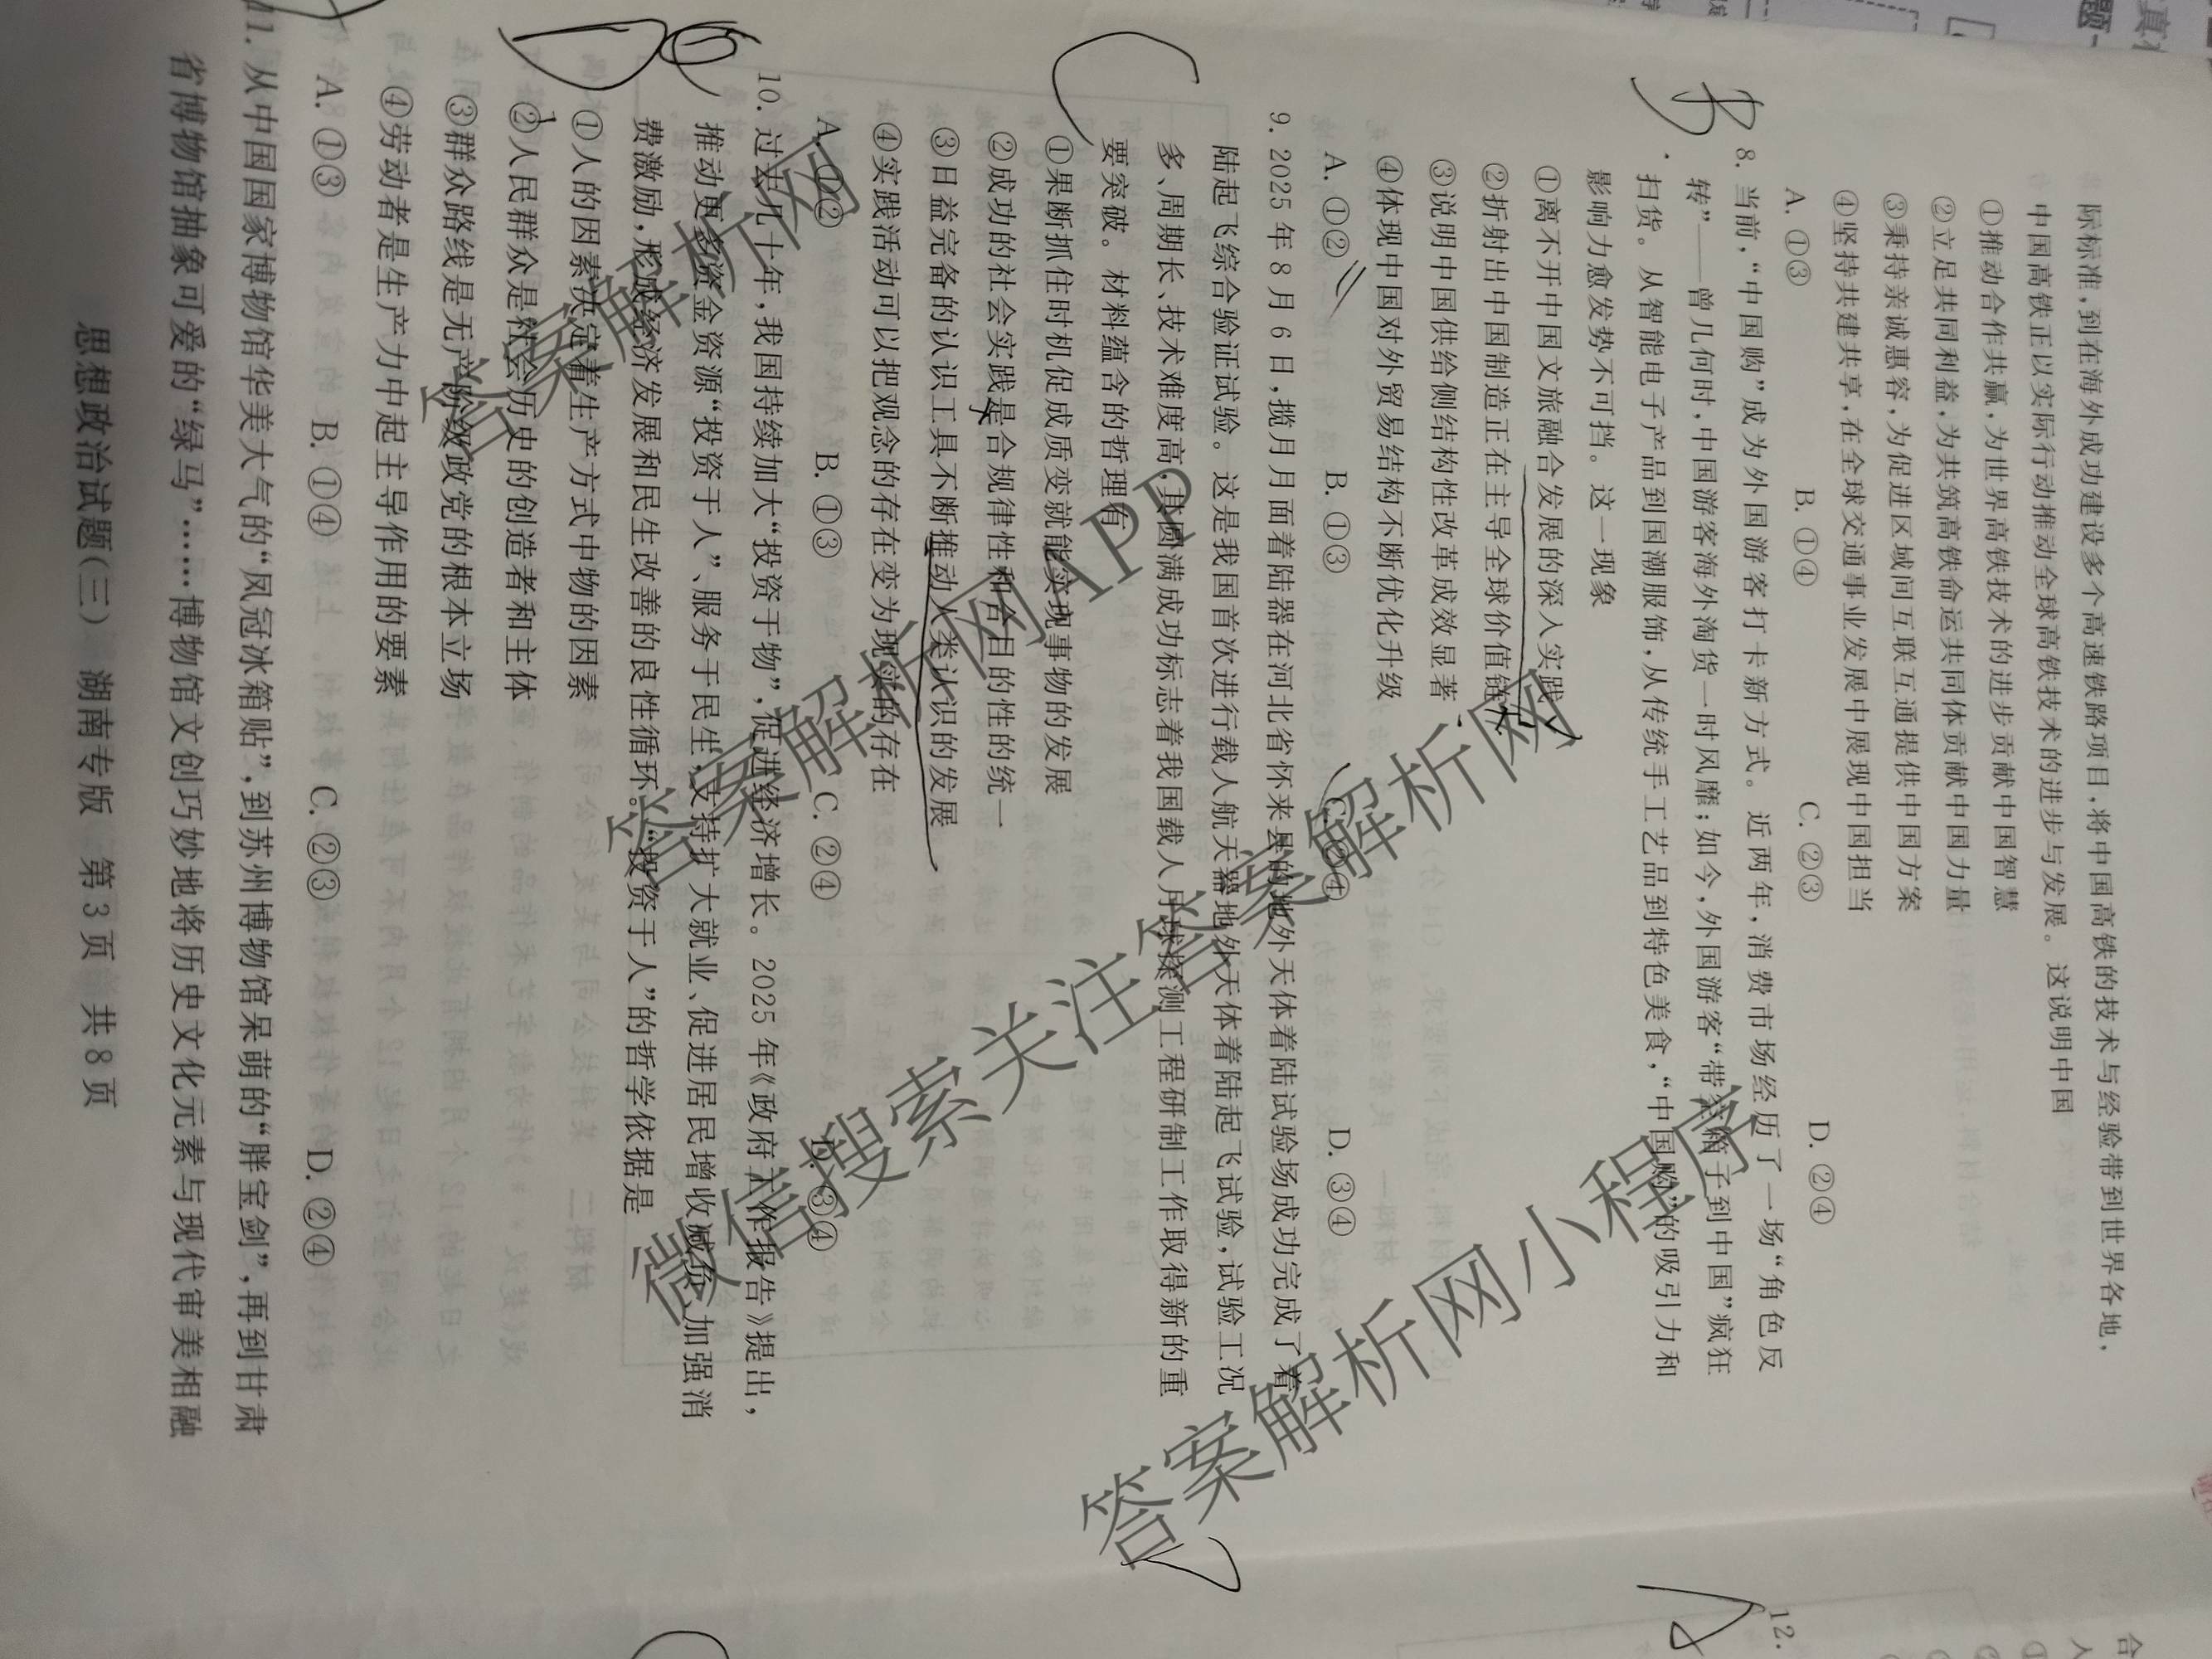 际标准,到在海外成功建设多个高速铁路项目,将中国高铁的技术与经验带到世界各地,
中国高铁正以实际行动推动全球高铁技术的进步与发展。这说明中国
①推动合作共赢,为世界高铁技术的进步贡献中国智慧
②立足共同利益,为共筑高铁命运共同体贡献中国力量
③秉持亲诚惠容,为促进区域间互联互通提供中国方案
④坚持共建共享,在全球交通事业发展中展现中国担当
A. ①③ B. ①④ C. ②③ D. ②④
8. 当前,“中国购”成为外国游客打卡新方式。近两年,消费市场经历了一场“角色反
转”——曾几何时,中国游客海外淘货一时风靡;如今,外国游客“带空箱子到中国”疯狂
扫货。从智能电子产品到国潮服饰,从传统手工艺品到特色美食,“中国购”的吸引力和
影响力愈发势不可挡。这一现象
①离不开中国文旅融合发展的深入实践
②折射出中国制造正在主导全球价值链
③说明中国供给侧结构性改革成效显著
④体现中国对外贸易结构不断优化升级
A. ①② B. ①③ C. ②④ D. ③④
9. 2025 年 8 月 6 日,揽月月面着陆器在河北省怀来县的地外天体着陆试验场成功完成了着
陆起飞综合验证试验。这是我国首次进行载人航天器地外天体着陆起飞试验,试验工况
多、周期长、技术难度高,其圆满成功标志着我国载人月球探测工程研制工作取得新的重
要突破。材料蕴含的哲理有
①果断抓住时机促成质变就能实现事物的发展
②成功的社会实践是合规律性和合目的性的统一
③日益完备的认识工具不断推动人类认识的发展
④实践活动可以把观念的存在变为现实的存在
A. ①② B. ①③ C. ②④ D. ③④
10. 过去几十年,我国持续加大“投资于物”,促进经济增长。2025 年《政府工作报告》提出,
推动更多资金资源“投资于人”、服务于民生,支持扩大就业、促进居民增收减负、加强消
费激励,形成经济发展和民生改善的良性循环。“投资于人”的哲学依据是
①人的因素决定着生产方式中物的因素
②人民群众是社会历史的创造者和主体
③群众路线是无产阶级政党的根本立场
④劳动者是生产力中起主导作用的要素
A. ①③ B. ①④ C. ②③ D. ②④
11. 从中国国家博物馆华美大气的“凤冠冰箱贴”,到苏州博物馆呆萌的“胖宝剑”,再到甘肃
省博物馆抽象可爱的“绿马”……博物馆文创巧妙地将历史文化元素与现代审美相融
思想政治试题(三) 湖南专版 第 3 页 共 8 页
12.
答案解析网
答案解析网APP
微信搜索关注答案解析网
答案解析网小程序